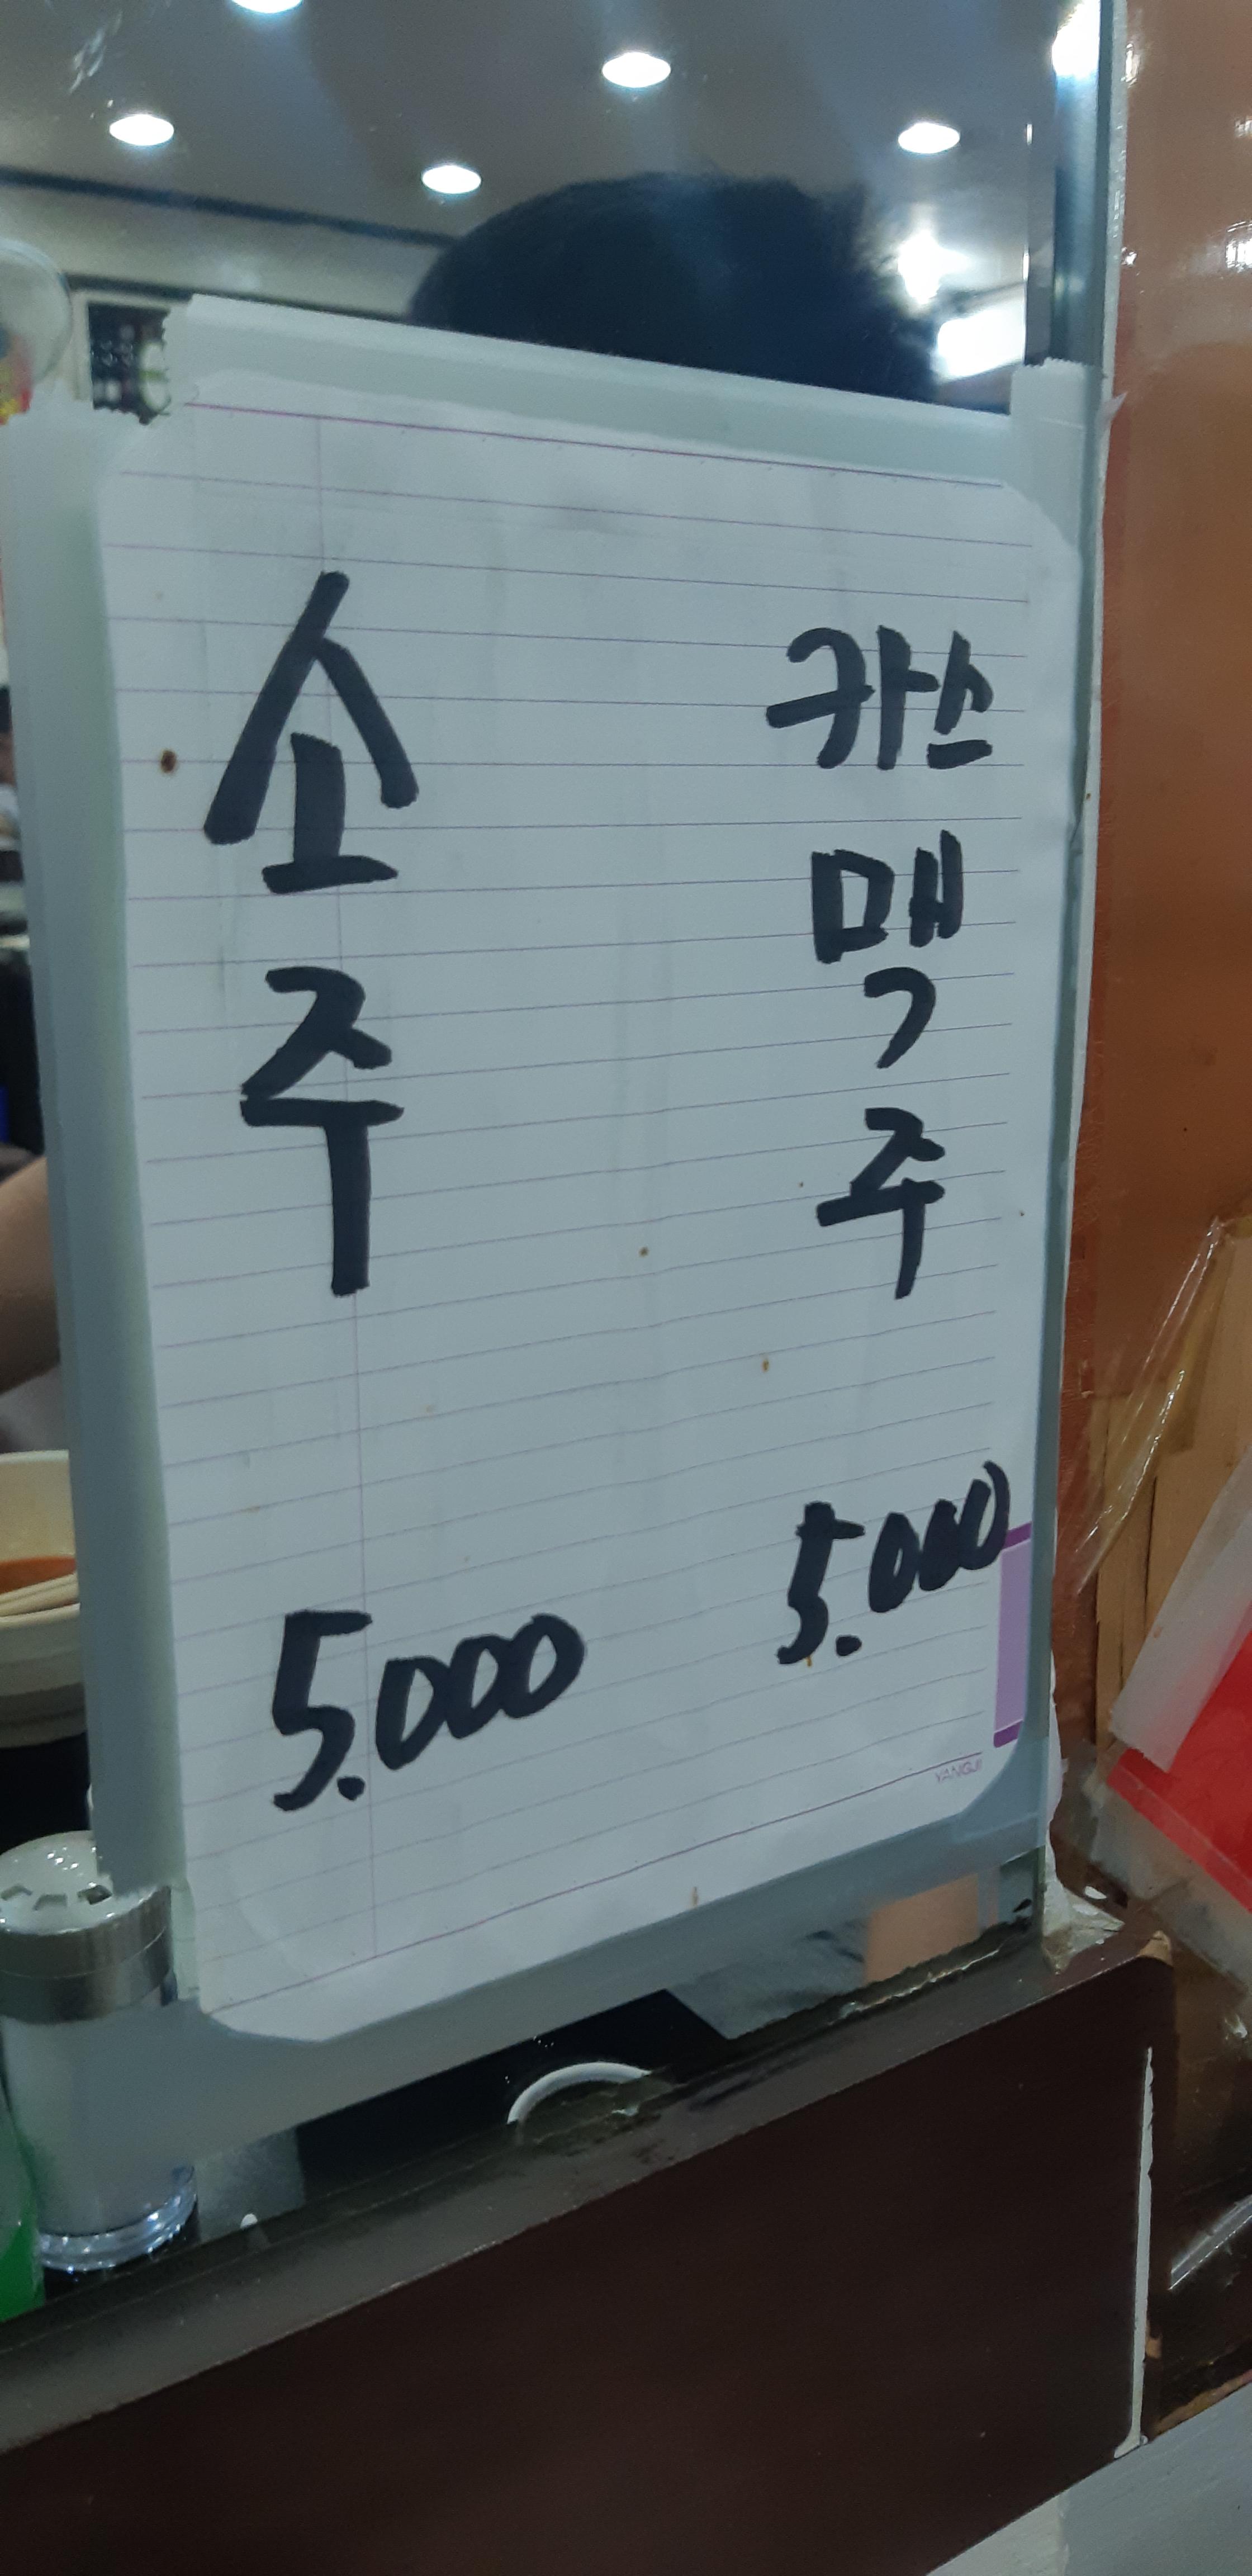 소주
5.000
카스
맥주
5.000
YANGJI